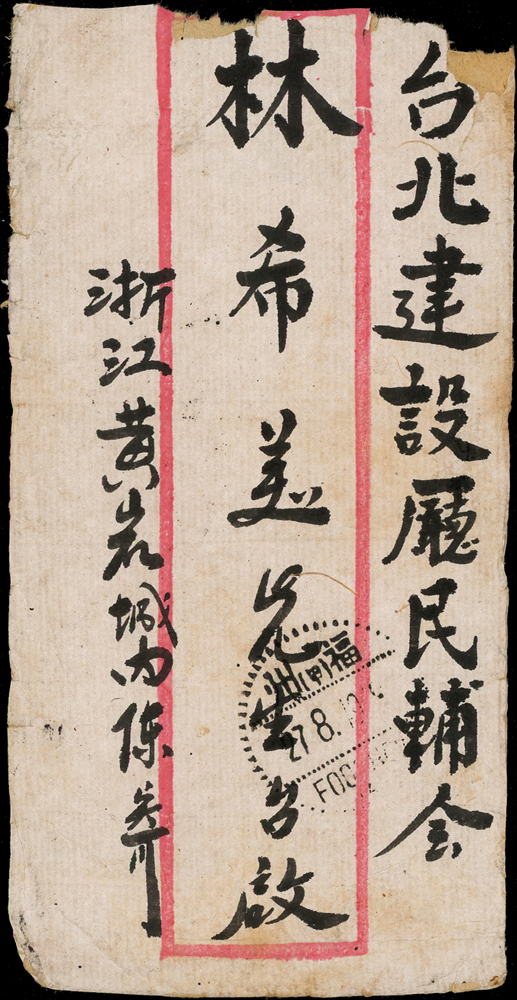 台北建設廳民輔会
林希美先生台啟
浙江黄岩城内陈
福(甲)州
27 8.